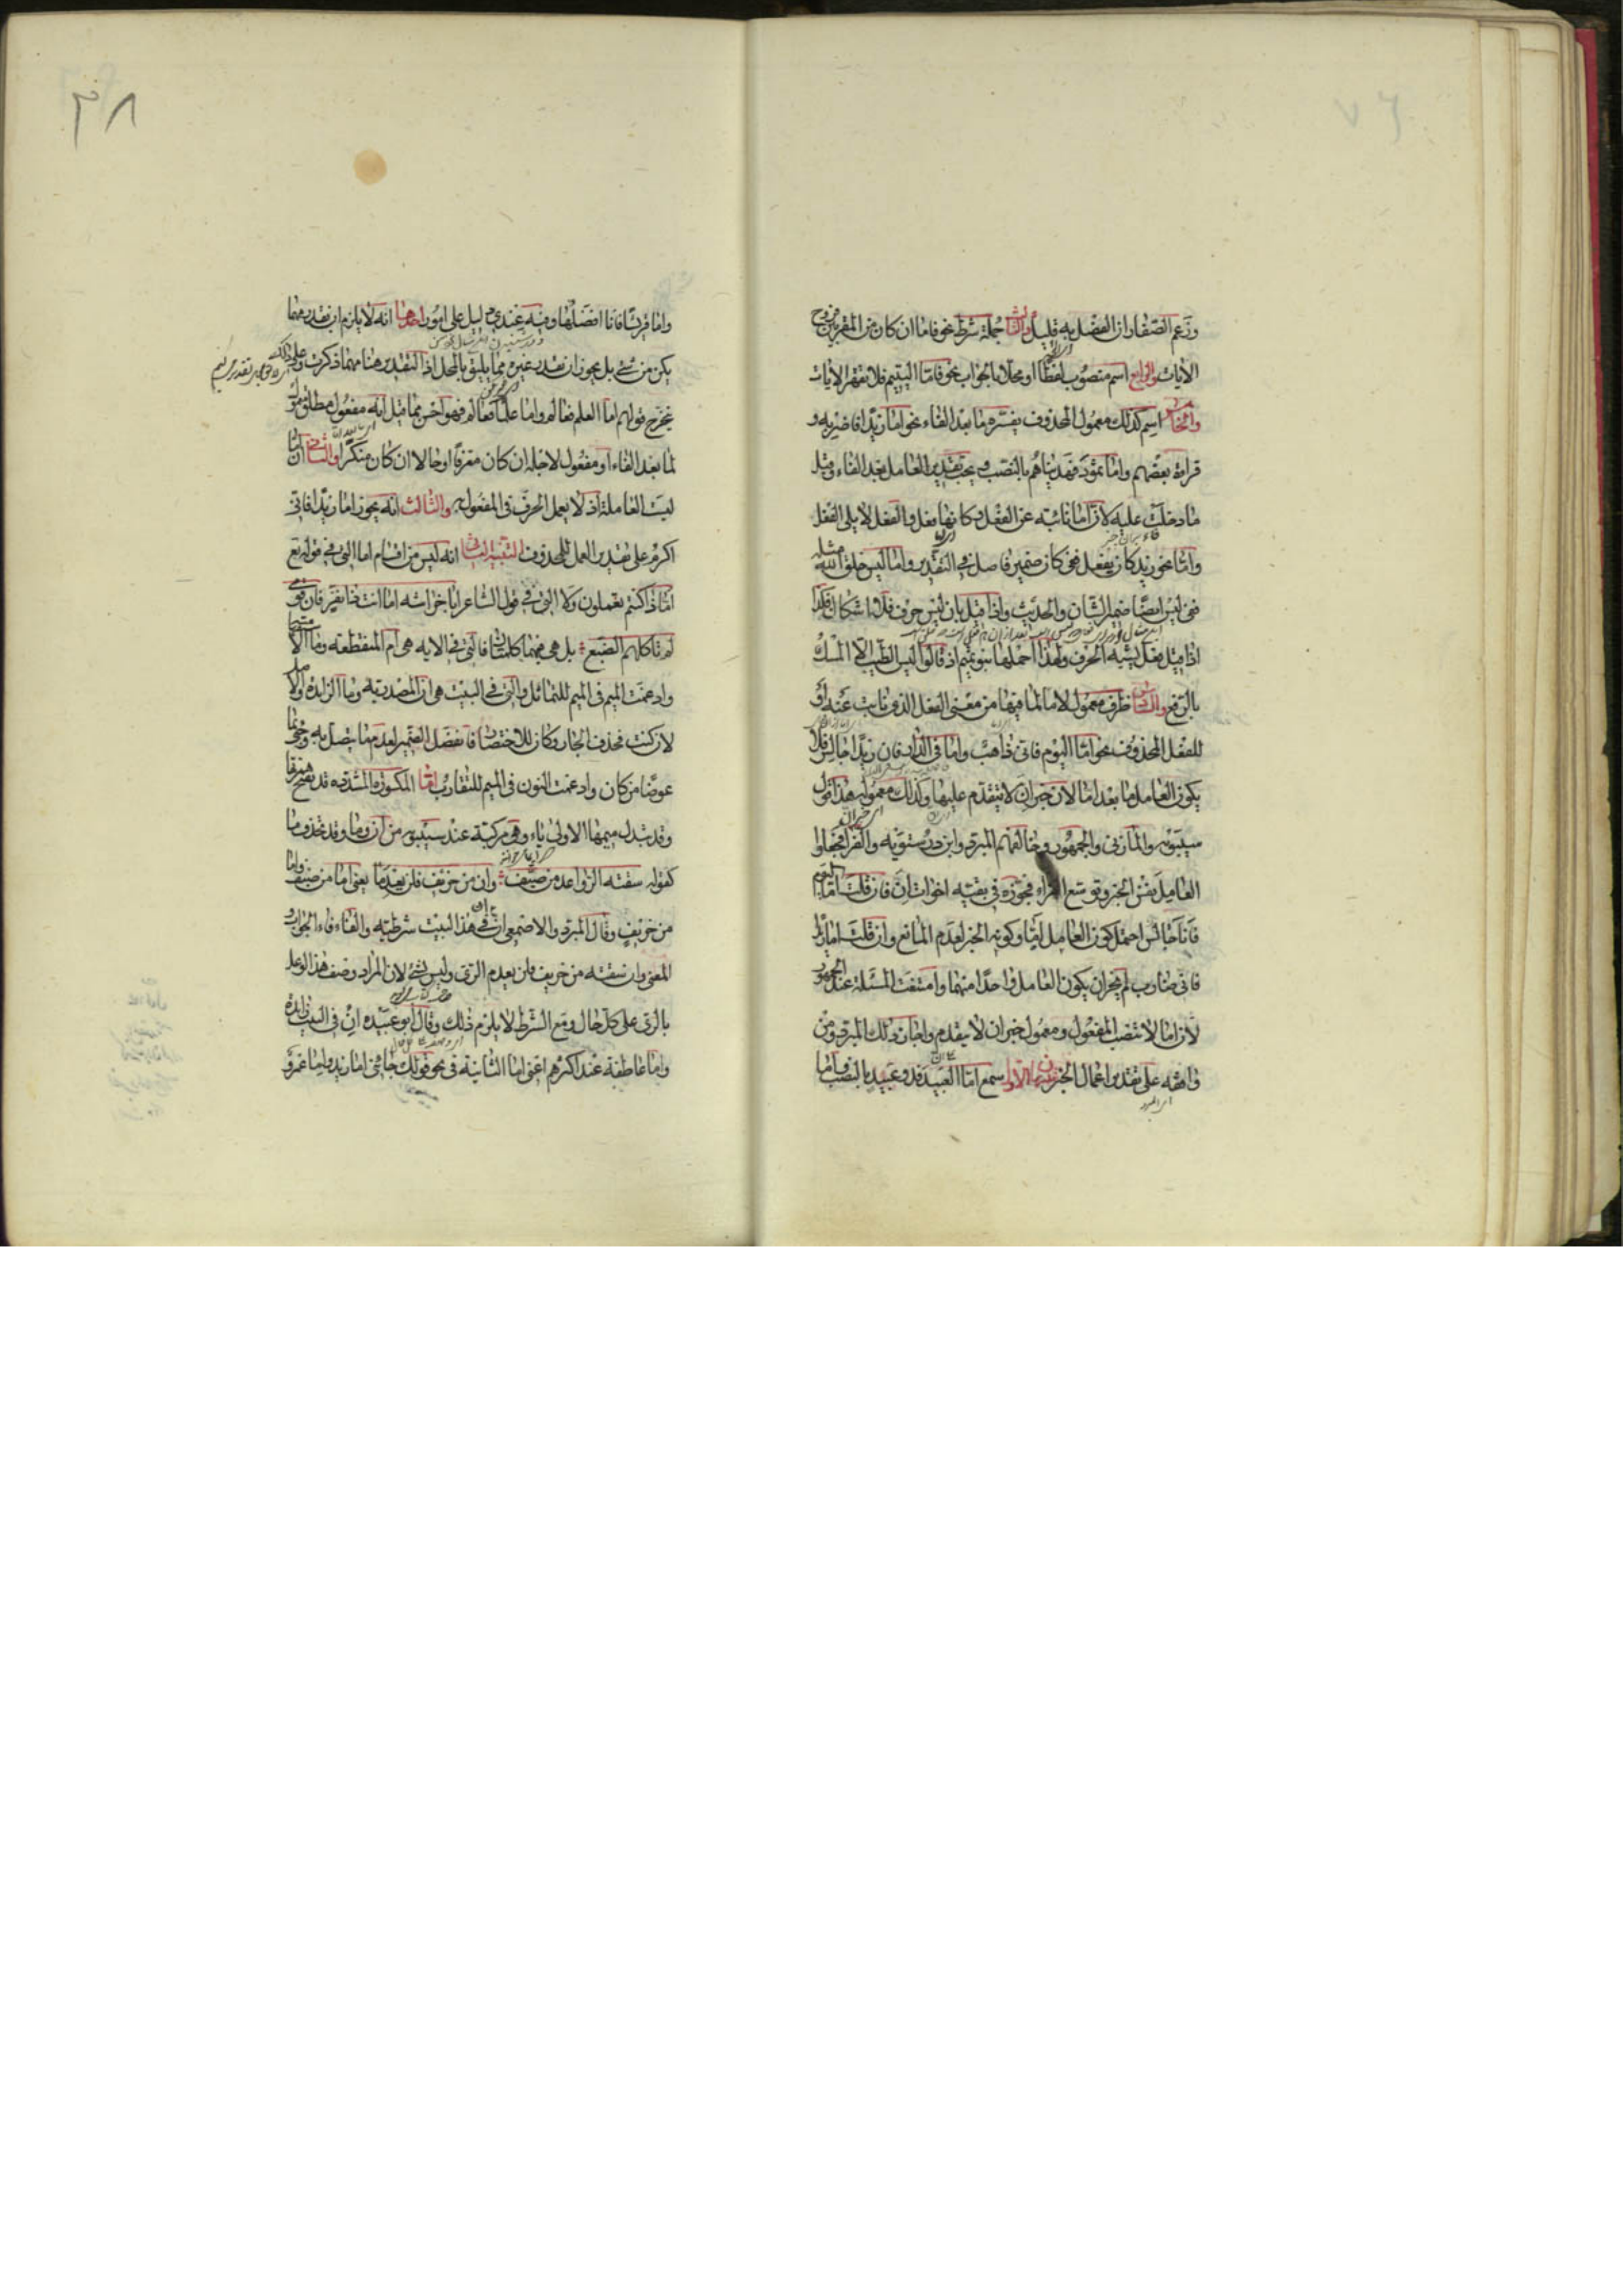 وزعم الصفار ان الفصل به قليل والثالث جملة شرط نحو فاما ان كان من المقربين فروح
الايات والرابع اسم منصوب لفظا او محلا بالجواب نحو فاما اليتيم فلا تقهر الايات
والخامس اسم كذلك معمول لمحذوف يفسره ما بعد الفاء نحو اما زيدا فاضربه و
قراءة بعضهم واما ثمود فهديناهم بالنصب ويجب تقدير العامل بعد الفاء وقبل
ما دخلت عليه لان اما نائبه عن الفعل وكانها فعل والفعل لا يلى الفعل
واما نحو زيد كان يفعل ففى كان ضمير فاصل فى التقدير واما ليس خلق الله مثله
ففى ليس ايضا ضمير الشان والحديث واذا قيل بان ليس حرف فلا اشكال وكذا
اذا قيل فعل يشبه الحرف ولهذا اهملها بنو تميم اذ قالوا ليس الطيب الا المسك
بالرفع والسادس ظرف معمول لاما لما فيها من معنى الفعل الذى نابت عنه او
للفعل المحذوف نحو اما اليوم فانى ذاهب واما فى الدار فان زيدا جالس فلا
يكون العامل ما بعد اما لان خبر ان لا يتقدم عليها وكذلك معموله هذا قول
سيبويه والمازنى والجمهور وخالفهم المبرد وابن درستويه والفرا فجعلوا
العامل نفس الخبر وتوسع الفراء فجوزه فى بقيته اخوات ان فان قلت اما اليوم
فانا جالس احتمل كون العامل اما وكونه الخبر لعدم المانع وان قلت اما زيدا
فانى ضارب لم يجز ان يكون العامل واحدا منهما وامتنعت المسئلة عند الجمهور
لان اما لا تنصب المفعول ومعمول خبر ان لا يتقدم واجاز ذلك المبرد ومن
وافقه على تقدير اعمال الخبر تنبيهان الاول سمع اما العبيد فذو عبيد بالنصب واما
واما قريشا فانا افضلها وفيه عندى دليل على امور احدها انه لا يلزم ان تقدر مهما
يكن من شئ بل يجوز ان تقدر غيره مما يليق بالمحل اذ التقدير هنا مهما ذكرت وعلى ذلك
يخرج قولهم اما العلم فعالم واما علما فعالم فهو احسن مما قيل انه مفعول مطلق معمول
لما بعد الفاء او مفعول لاجله ان كان معرفا او حالا ان كان منكرا والثانى ان اما
ليست العاملة اذ لا يعمل الحرف فى المفعول به والثالث انه يجوز اما زيدا فانى
اكرم على تقدير العمل للمحذوف التنبيه الثانى انه ليس من اقسام اما التى فى قوله تع
اما ذا كنتم تعملون ولا التى فى قول الشاعر ابا خراشه اما انت ذا نفر فان قومى
لم تاكلهم الضبع بل هى فيهما كلمتان فالتى فى الايه هى ام المنقطعه وما الاستفهامية
وادغمت الميم فى الميم للتماثل والتى فى البيت هى ان المصدريه وما الزايده والاصل
لان كنت فحذف الجار وكان للاختصار فانفصل الضمير لعدم ما يتصل به وجئ بما
عوضا من كان وادغمت النون فى الميم للتقارب اما المكسورة المشدده قد تفتح همزتها
وقد تبدل ميمها الاولى ياء وهى مركبة عند سيبويه من ان وما وقد تحذف ما
كقوله سقته الرواعد من صيف وان من خريف فلن يعدما يعنى اما من صيف واما
من خريف وقال المبرد والاصمعى ان فى هذا البيت شرطيه والفاء فاء الجواب و
المعنى وان سقته من خريف فلن يعدم الرى وليس بشئ لان المراد وصف هذا الوعل
بالرى على كل حال ومع الشرط لا يلزم ذلك وقال ابو عبيده ان فى البيت زايدة
واما عاطفة عند اكثرهم اعنى اما الثانية فى نحو قولك جائنى اما زيد واما عمرو